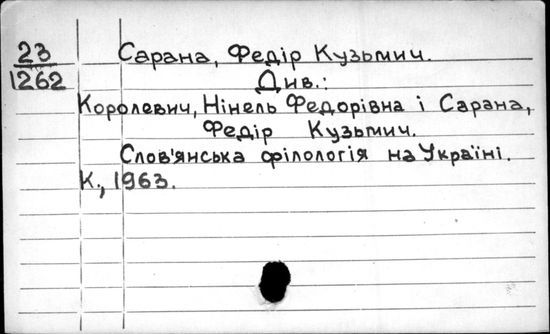 23 Сарана, Федір Кузьмич.
1262 Див.:
Королевич, Нінель Федорівна і Сарана,
Федір Кузьмич.
Слов'янська філологія на Україні.
К., 1963.